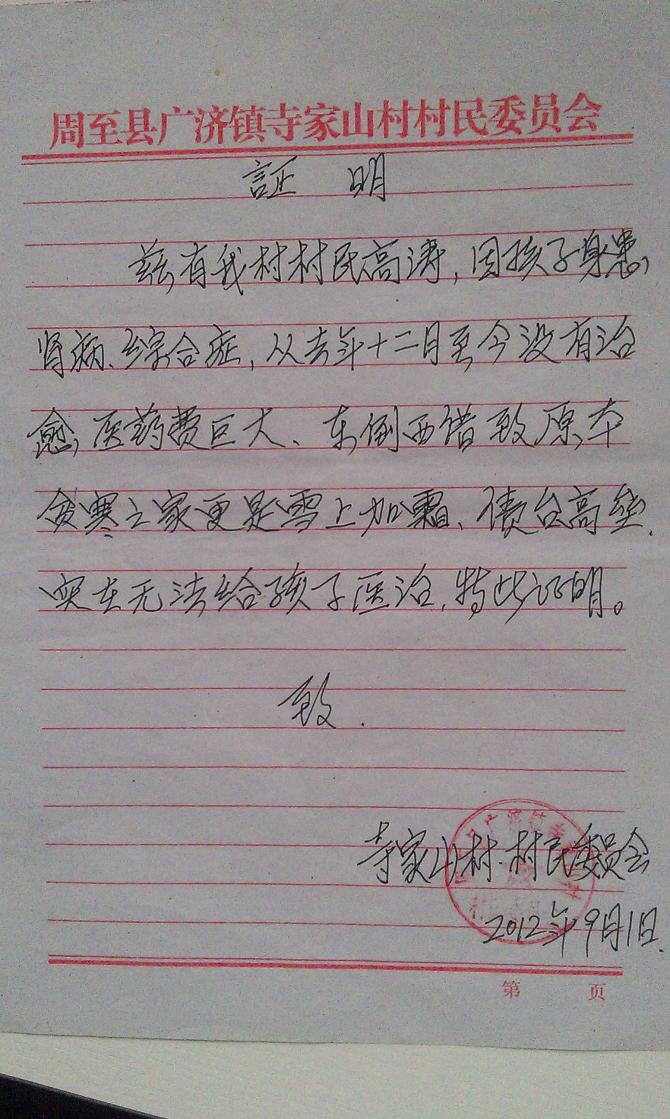 周至县广济镇寺家山村村民委员会
証 明
兹有我村村民高涛,因孩子身患
肾病、综合症,从去年十二月至今没有治
愈,医药费巨大、东倒西借致原本
贫寒之家更是雪上加霜、债台高垒.
实在无法给孩子医治,特此证明。
致.
寺家山村.村民委员会
2012年9月1日.
第 页